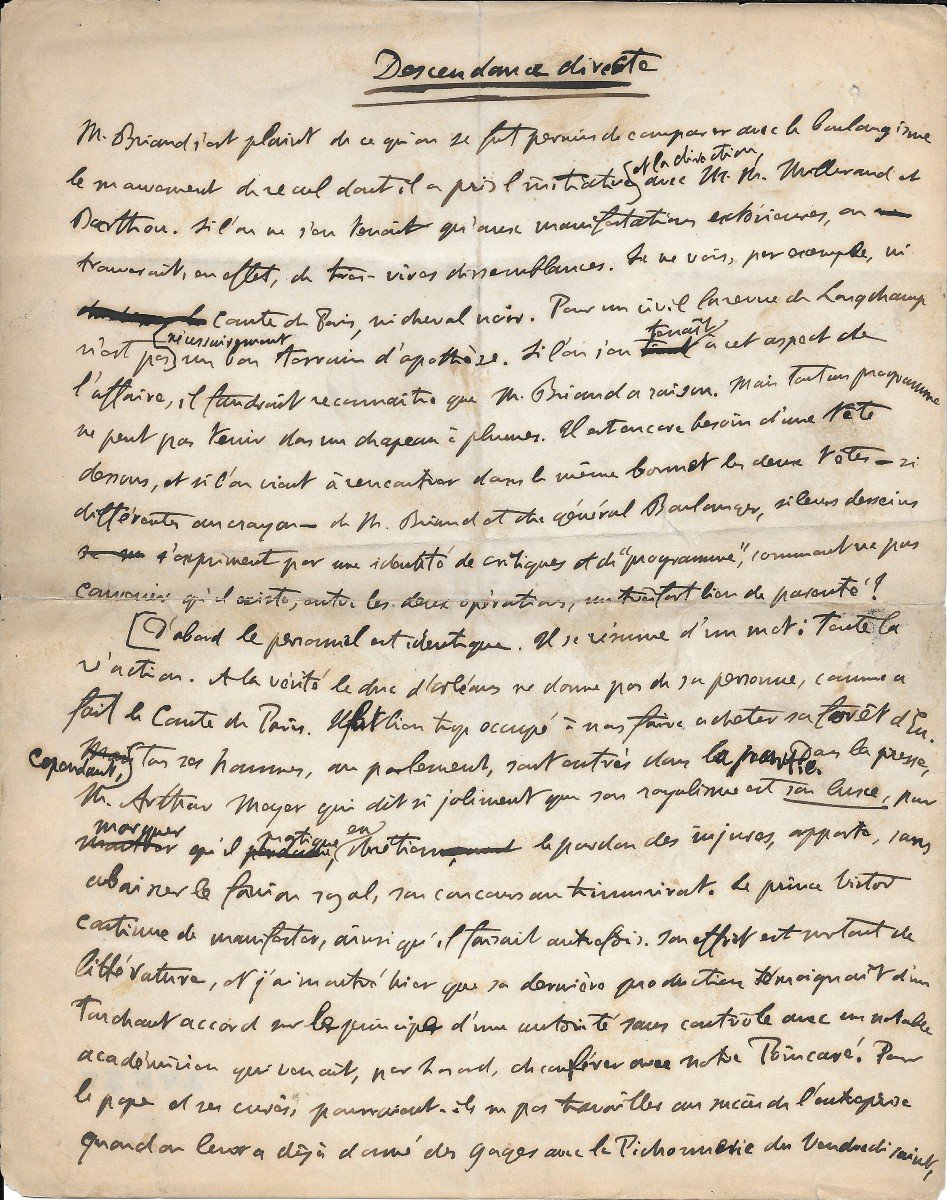 Descendance directe
M. Briand s'est plaint de ce qu'on se fut permis de comparer avec le boulangisme
le mouvement de recul dont il a pris l'initiative et la direction, avec M. M. Millerand et
Barthou. Si l'on ne s'en tenait qu'aux manifestations extérieures, on
trouverait, en effet, de très-vives dissemblances. Je ne vois, par exemple, ni
Comte de Paris, ni cheval noir. Pour un civil luzerne de Longchamp
n'est pas nécessairement un bon terrain d'apothèse. Si l'on s'en tenait à cet aspect de
l'affaire, il faudrait reconnaître que M. Briand a raison. Mais tout un programme
ne peut pas tenir dans un chapeau à plumes. Il est encore besoin d'une tête
dessous, et si l'on vient à rencontrer dans le même bonnet les deux têtes — si
différentes au crayon — de M. Briand et du général Boulanger, si leurs desseins
s'expriment par une identité de critiques et de "programme", comment ne pas
convenir qu'il existe, entre les deux opérations, un très fort lien de parenté?
[D'abord le personnel est identique. Il se résume d'un mot: toute la
réaction. A la vérité le duc d'orléans ne donne pas de sa personne, comme a
fait le Comte de Paris. Il est bien trop occupé à nous faire acheter sa forêt d'Eu.
Cependant, tous ses hommes, au parlement, sont entrés dans la partie. Dans la presse,
M. Arthur Meyer qui dit si joliment que son royalisme est son luxe, pour
marquer qu'il pratique en chrétien le pardon des injures, apporte, sans
abaisser le fanion royal, son concours au triumvirat. Le prince Victor
continue de manifester, ainsi qu'il faisait autrefois. Son effort est surtout de
littérature, et j'ai montré hier que sa dernière production témoignait d'un
touchant accord sur le principe d'une autorité sans contrôle avec un notable
académicien qui venait, par hasard, de conférer avec notre Poincaré. Pour
le pape et ses curés, pourraient-ils ne pas travailler au succès de l'entreprise
quand on leur a déjà donné des gages avec la Pichonnerie du Vendredi saint,